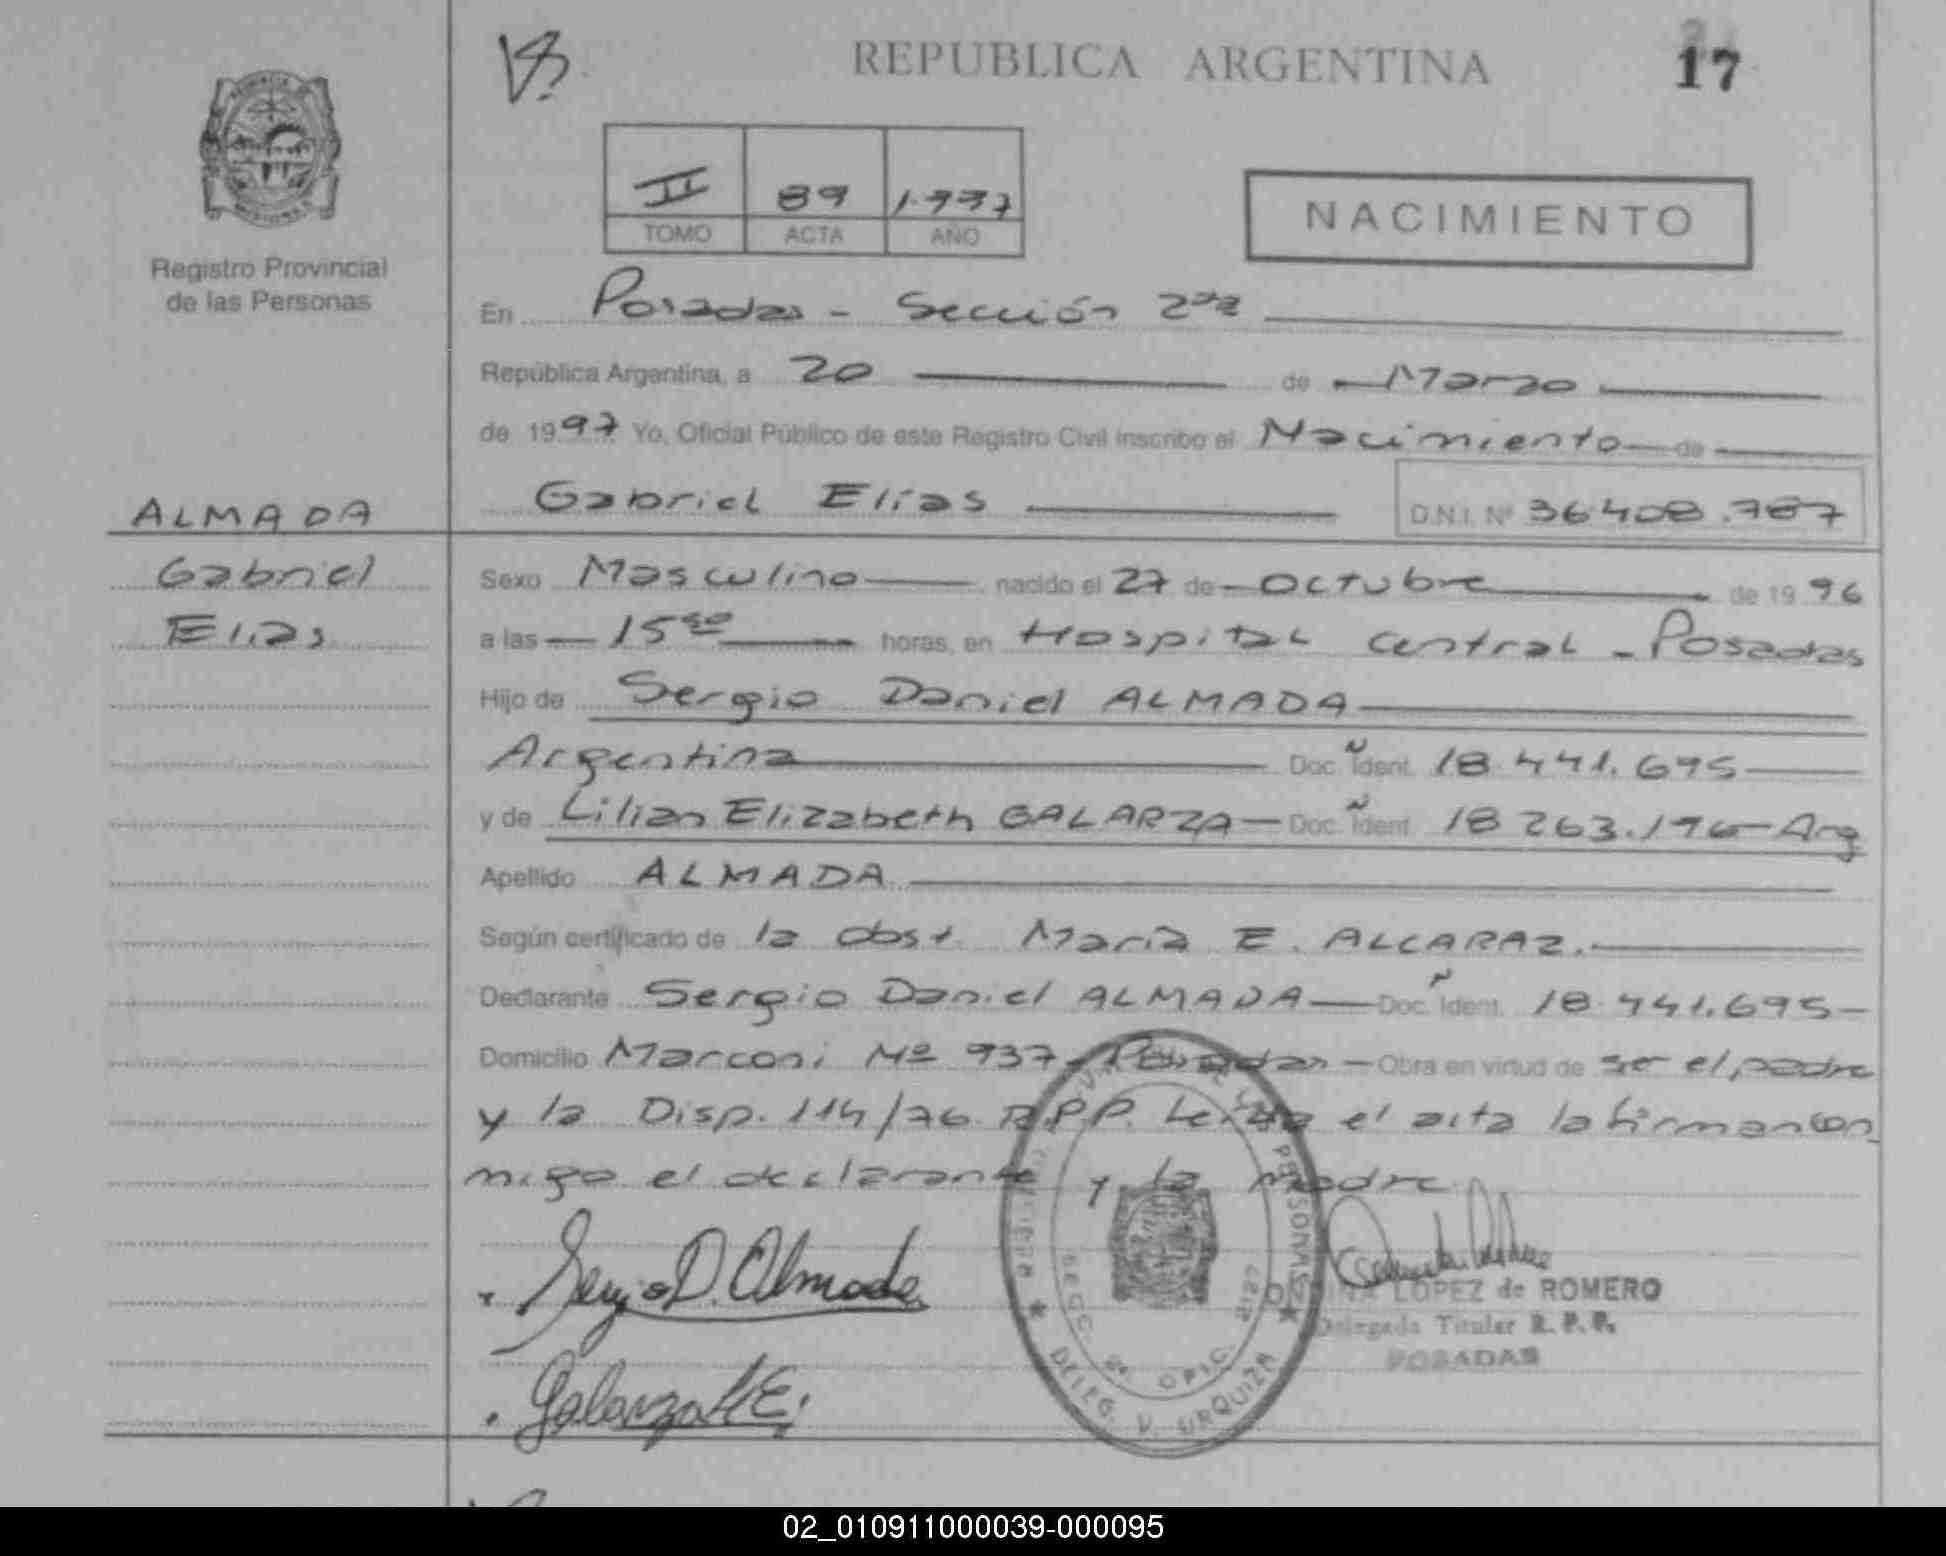 REPUBLICA ARGENTINA
17
II 89 1.997
TOMO ACTA AÑO
NACIMIENTO
Registro Provincial
de las Personas
En Posadas - Sección 2da
República Argentina, a 20 de Marzo
de 1997 Yo, Oficial Público de este Registro Civil inscribo el Nacimiento de
Gabriel Elias D.N.I. Nº 36.408.787
ALMADA
Gabriel
Elias
Sexo Masculino nacido el 27 de Octubre de 1996
a las 15 horas, en Hospital Central - Posadas
Hijo de Sergio Daniel ALMADA
Argentina Doc. Ident. 18.441.695
y de Lilian Elizabeth GALARZA - Doc. Ident. 18.263.196 - Arg
Apellido ALMADA
Según certificado de la Obst. María E. ALCARAZ.
Declarante Sergio Daniel ALMADA - Doc. Ident. 18.441.695 -
Domicilio Marconi Nº 937 - Posadas - Obra en virtud de ser el padre
y la Disp. 114/76 R.P.P. Leída el acta la firman con
migo el declarante y la madre
Sergio D. Almada
Galarza L E.
PERSONAS
SECC. 2ª OFIC.
DELEG. V. URQUIZA
LOPEZ de ROMERO
Delegada Titular R. P. P.
POSADAS
02_010911000039-000095